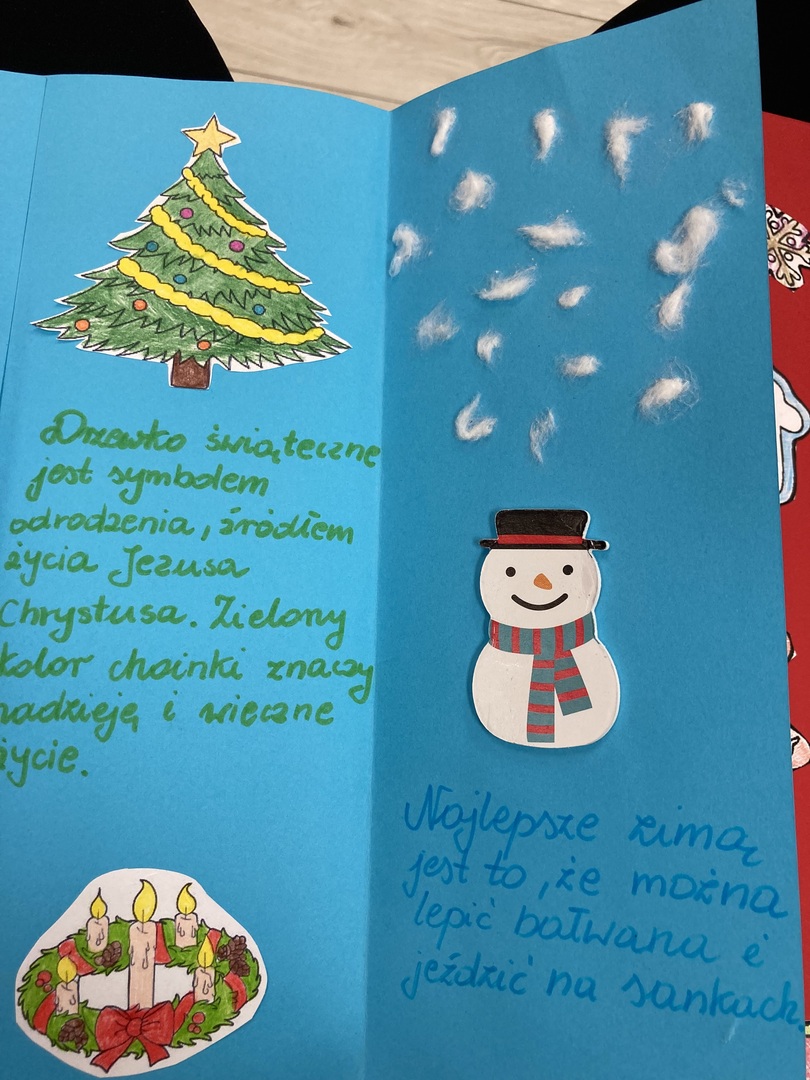 Drzewko świąteczne
jest symbolem
odrodzenia, źródłem
życia Jezusa
Chrystusa. Zielony
kolor choinki znaczy
nadzieję i wieczne
życie.
Najlepsze zimą
jest to, że można
lepić bałwana i
jeździć na sankach.